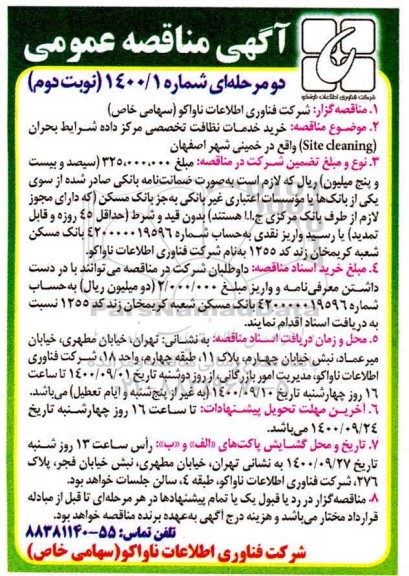 آگهی مناقصه عمومی
شرکت فناوری اطلاعات ناواکو
دو مرحله‌ای شماره ۱۴۰۰/۱ (نوبت دوم)
۱. مناقصه‌گزار: شرکت فناوری اطلاعات ناواکو (سهامی خاص)
۲. موضوع مناقصه: خرید خدمات نظافت تخصصی مرکز داده شرایط بحران
(Site cleaning) واقع در خمینی شهر اصفهان
۳. نوع و مبلغ تضمین شرکت در مناقصه: مبلغ ۳۲۵,۰۰۰,۰۰۰ (سیصد و بیست
و پنج میلیون) ریال که لازم است به‌صورت ضمانت‌نامه بانکی صادر شده از سوی
یکی از بانک‌ها یا مؤسسات اعتباری غیر بانکی به‌جز بانک مسکن (که دارای مجوز
لازم از طرف بانک مرکزی ج.ا.ا هستند) بدون قید و شرط (حداقل ۴۵ روزه و قابل
تمدید) یا رسید واریز نقدی به‌حساب شماره ۴۲۰۰۰۰۰۱۹۵۹۶ بانک مسکن
شعبه کریمخان زند کد ۱۲۵۵ به‌نام شرکت فناوری اطلاعات ناواکو.
۴. مبلغ خرید اسناد مناقصه: داوطلبان شرکت در مناقصه می‌توانند با در دست
داشتن معرفی‌نامه و واریز مبلغ ۲/۰۰۰/۰۰۰ (دو میلیون ریال) به‌حساب
شماره ۴۲۰۰۰۰۰۱۹۵۹۶ بانک مسکن شعبه کریمخان زند کد ۱۲۵۵ نسبت
به دریافت اسناد اقدام نمایند.
۵. محل و زمان دریافت اسناد مناقصه: به نشانی: تهران، خیابان مطهری، خیابان
میرعماد، نبش خیابان چهارم، پلاک ۱۱، طبقه چهارم، واحد ۱۸، شرکت فناوری
اطلاعات ناواکو، مدیریت امور بازرگانی، از روز دوشنبه تاریخ ۱۴۰۰/۰۹/۰۱ تا ساعت
۱۶ روز چهارشنبه تاریخ ۱۴۰۰/۰۹/۱۰ (به غیر از پنج‌شنبه و ایام تعطیل) می‌باشد.
۶. آخرین مهلت تحویل پیشنهادات: تا ساعت ۱۶ روز چهارشنبه تاریخ
۱۴۰۰/۰۹/۲۴ می‌باشد.
۷. تاریخ و محل گشایش پاکت‌های «الف» و «ب»: رأس ساعت ۱۳ روز شنبه
تاریخ ۱۴۰۰/۰۹/۲۷ به نشانی تهران، خیابان مطهری، نبش خیابان فجر، پلاک
۲۷۶، شرکت فناوری اطلاعات ناواکو، طبقه ۴، سالن جلسات خواهد بود.
۸. مناقصه‌گزار در رد یا قبول یک یا تمام پیشنهادها در هر مرحله‌ای تا قبل از مبادله
قرارداد مختار می‌باشد و هزینه درج آگهی به‌عهده برنده مناقصه خواهد بود.
تلفن تماس: ۵۵-۸۸۳۸۱۱۴۰
شرکت فناوری اطلاعات ناواکو (سهامی خاص)